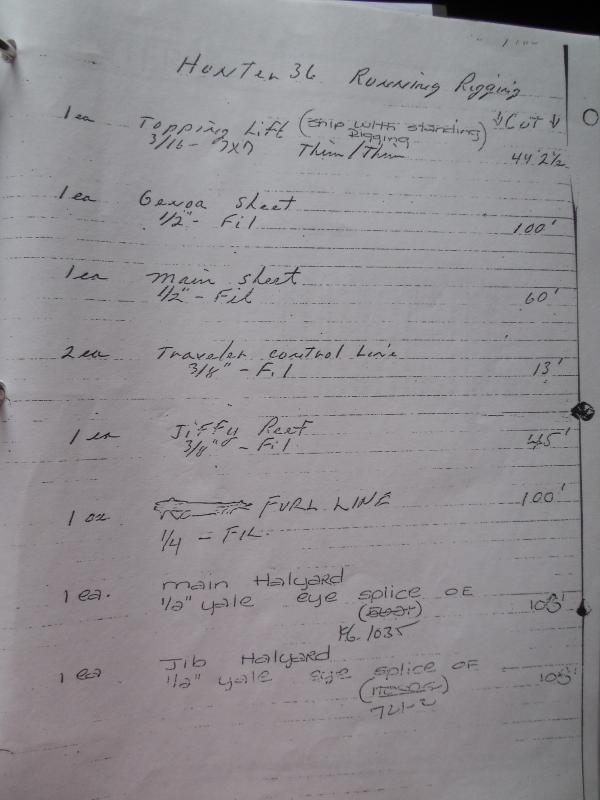 Hunter 36 Running Rigging
1 ea Topping Lift (Ship with standing Rigging) ↓Cut↓
3/16 - 7x7 Thim/Thim 44' 2 1/2
1 ea Genoa sheet
1/2" - Fil 100'
1 ea main sheet
1/2" - Fil 60'
2 ea Traveler control Line
3/8" - Fil 13'
1 ea Jiffy Reef
3/8" - Fil 45'
1 ea FURL LINE 100'
1/4 - FIL.
1 ea. main Halyard
1/2" yale eye splice OE 105'
1035
1 ea Jib Halyard
1/2" yale eye splice OF 105'
721-2